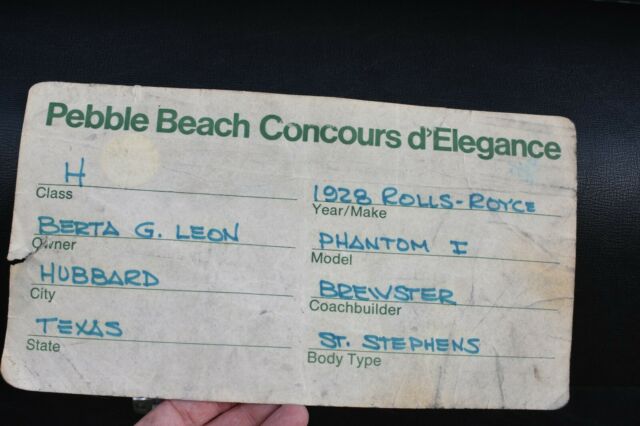 Pebble Beach Concours d'Elegance
H
Class
BERTA G. LEON
Owner
HUBBARD
City
TEXAS
State
1928 ROLLS-ROYCE
Year/Make
PHANTOM I
Model
BREWSTER
Coachbuilder
ST. STEPHENS
Body Type